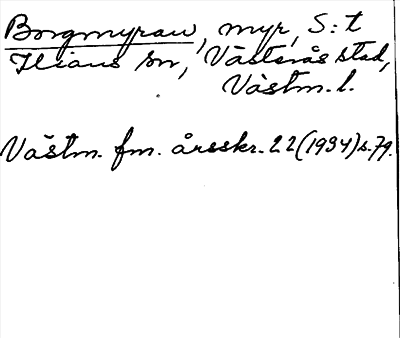 Borgmyran, myr, S:t
Ilians sn, Västerås stad,
Västm. l.
Västm. fm. årsskr. 22(1934)s.79.